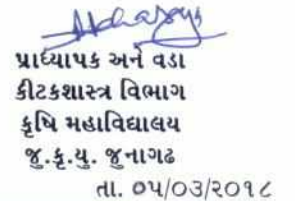 પ્રાધ્યાપક અને વડા
કીટકશાસ્ત્ર વિભાગ
કૃષિ મહાવિદ્યાલય
જુ.કૃ.યુ. જુનાગઢ
તા. ૦૫/૦૩/૨૦૧૮